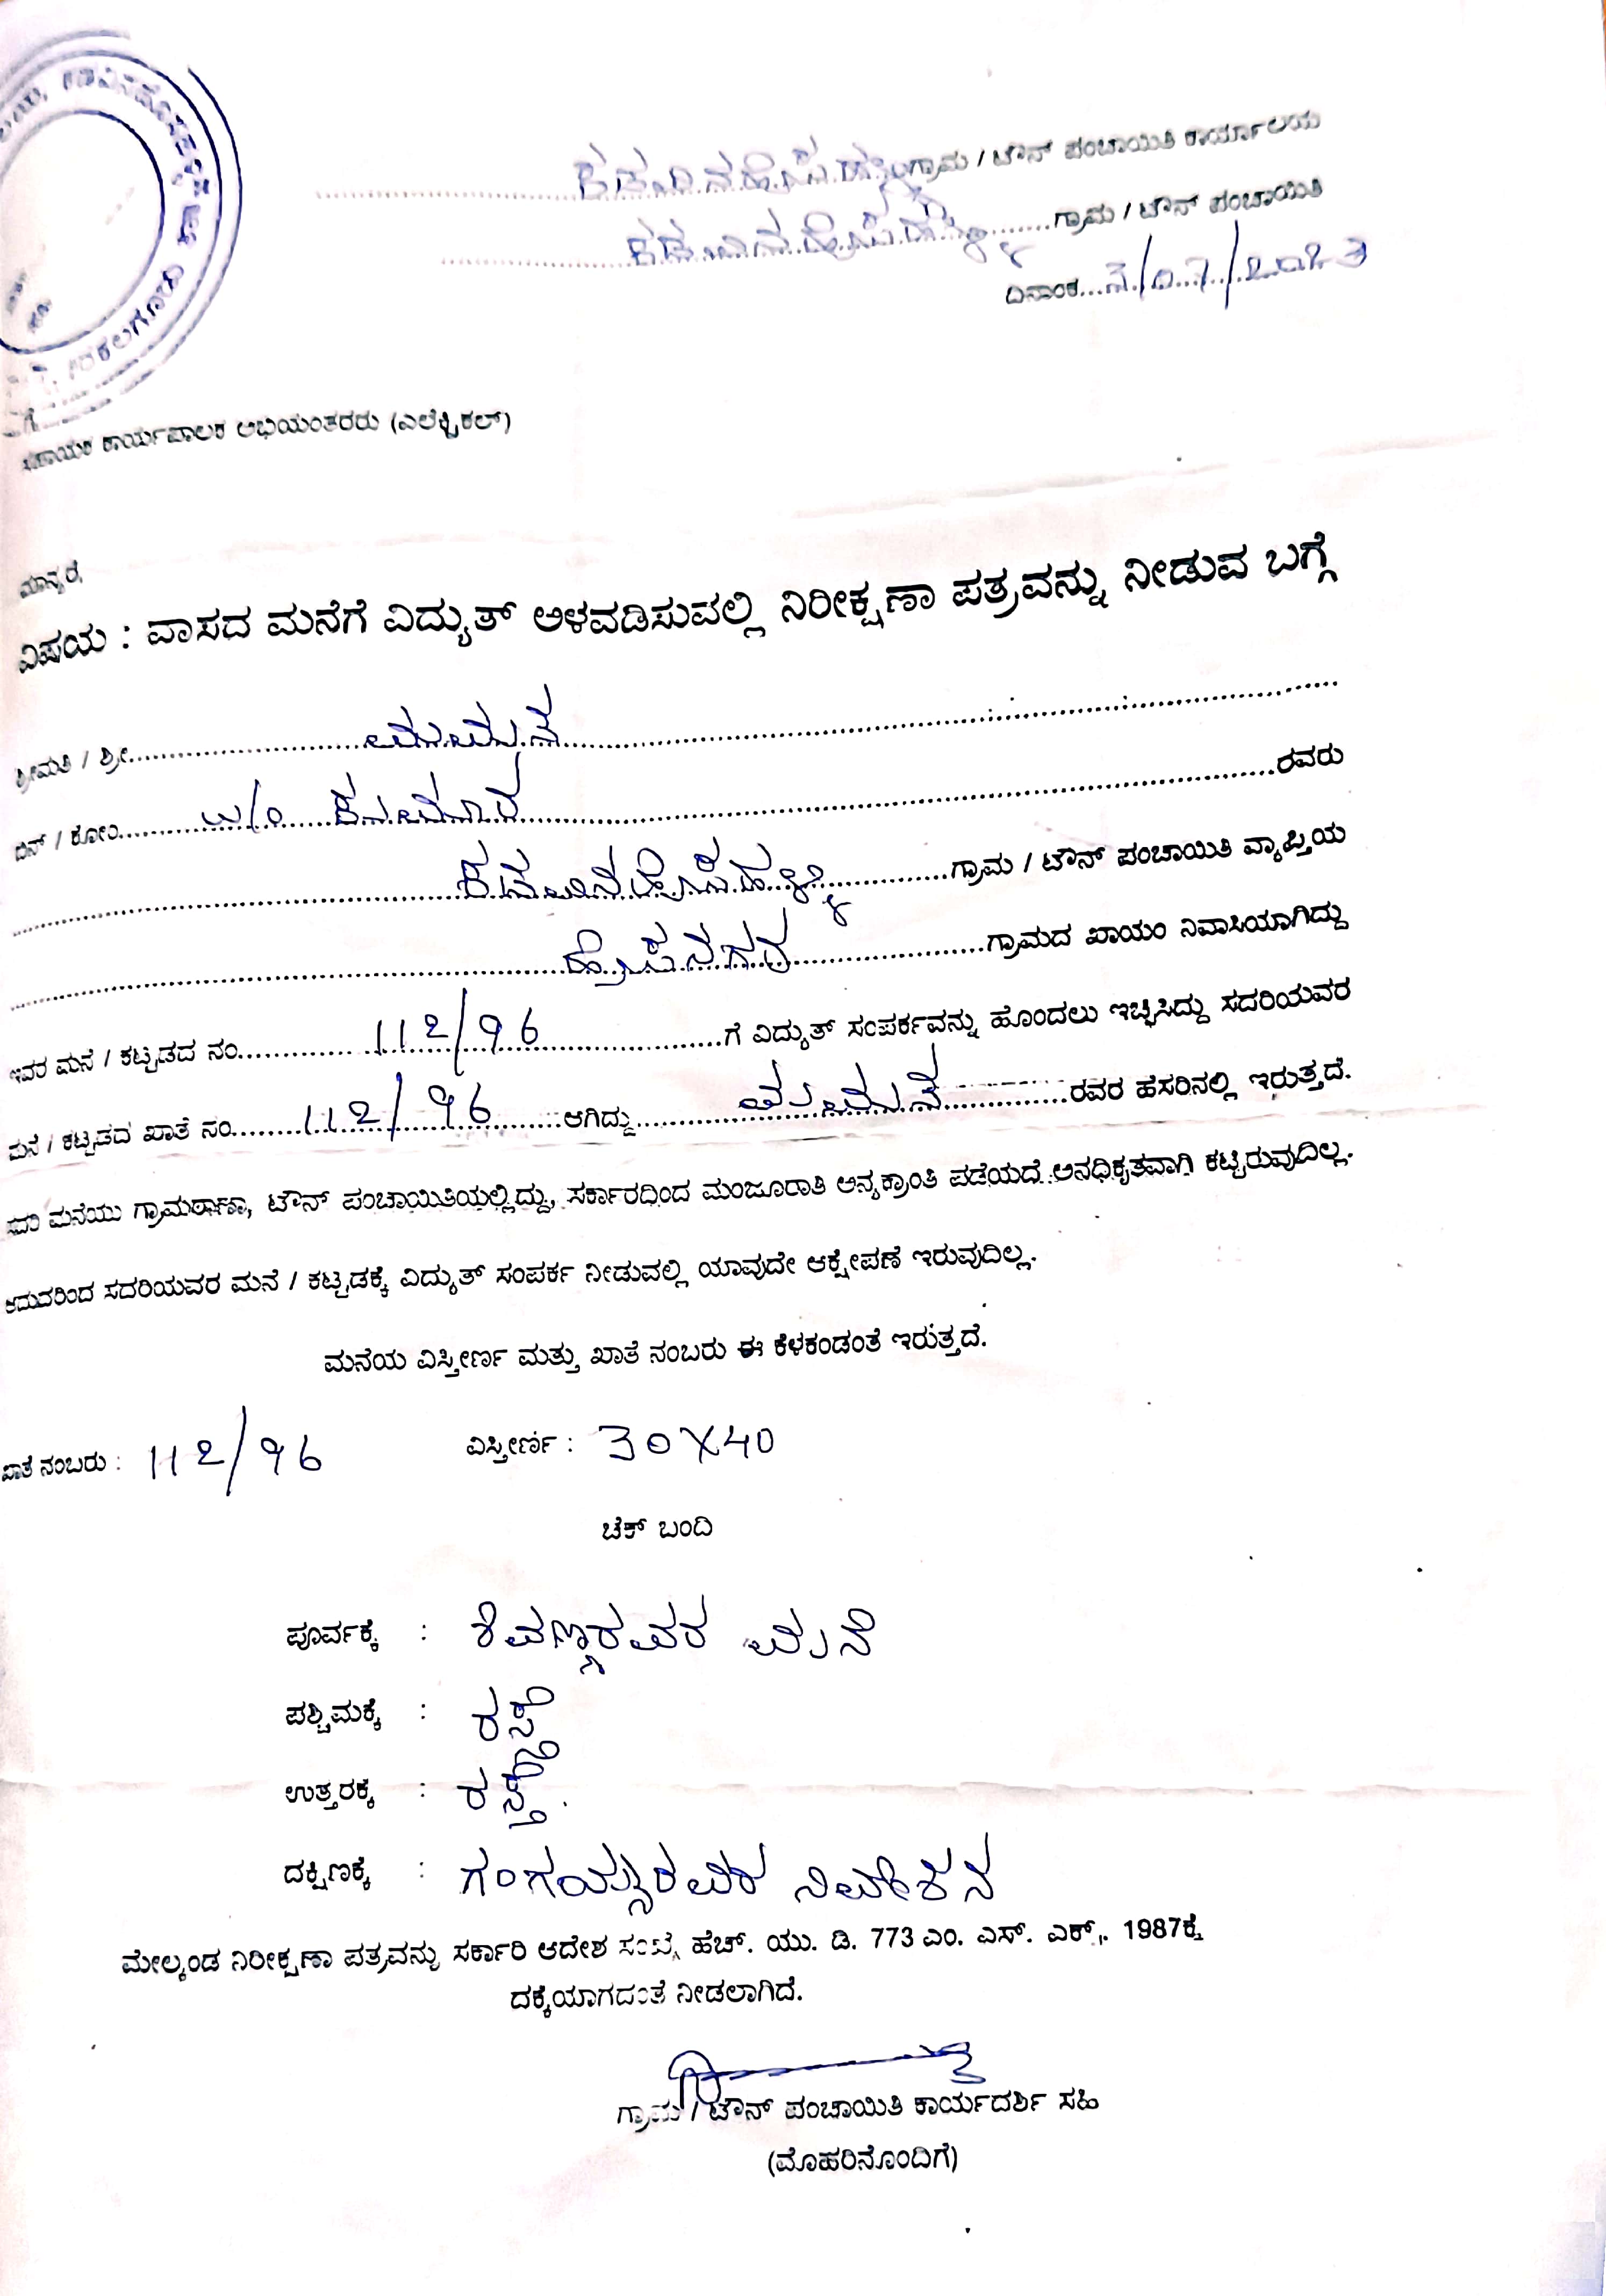 ಕಡುವಿನಹೊಸಹಳ್ಳಿ ಗ್ರಾಮ / ಟೌನ್ ಪಂಚಾಯಿತಿ ಕಾರ್ಯಾಲಯ
ಕಡುವಿನಹೊಸಹಳ್ಳಿ ಗ್ರಾಮ / ಟೌನ್ ಪಂಚಾಯಿತಿ
ದಿನಾಂಕ... 3/07/2023
ಸಹಾಯಕ ಕಾರ್ಯಪಾಲಕ ಅಭಿಯಂತರರು (ಎಲೆಕ್ಟ್ರಿಕಲ್)
ಮಾನ್ಯರೆ,
ವಿಷಯ : ವಾಸದ ಮನೆಗೆ ವಿದ್ಯುತ್ ಅಳವಡಿಸುವಲ್ಲಿ ನಿರೀಕ್ಷಣಾ ಪತ್ರವನ್ನು ನೀಡುವ ಬಗ್ಗೆ
ಶ್ರೀಮತಿ / ಶ್ರೀ.......... ಯಮುನ
ಬಿನ್ / ಕೋಂ.......... w/o ಕುಮಾರ ..........ರವರು
ಕಡುವಿನಹೊಸಹಳ್ಳಿ ..........ಗ್ರಾಮ / ಟೌನ್ ಪಂಚಾಯಿತಿ ವ್ಯಾಪ್ತಿಯ
ಹೊಸನಗರ ..........ಗ್ರಾಮದ ಖಾಯಂ ನಿವಾಸಿಯಾಗಿದ್ದು
ಇವರ ಮನೆ / ಕಟ್ಟಡದ ನಂ.......... 112/96 ..........ಗೆ ವಿದ್ಯುತ್ ಸಂಪರ್ಕವನ್ನು ಹೊಂದಲು ಇಚ್ಛಿಸಿದ್ದು ಸದರಿಯವರ
ಮನೆ / ಕಟ್ಟಡದ ಖಾತೆ ನಂ.......... 112/96 ..........ಆಗಿದ್ದು.......... ಯಮುನ ..........ರವರ ಹೆಸರಿನಲ್ಲಿ ಇರುತ್ತದೆ.
ಸದರಿ ಮನೆಯು ಗ್ರಾಮಠಾಣಾ, ಟೌನ್ ಪಂಚಾಯಿತಿಯಲ್ಲಿದ್ದು, ಸರ್ಕಾರದಿಂದ ಮಂಜೂರಾತಿ ಅನ್ಯಕ್ರಾಂತಿ ಪಡೆಯದೆ ಅನಧಿಕೃತವಾಗಿ ಕಟ್ಟಿರುವುದಿಲ್ಲ.
ಆದುದರಿಂದ ಸದರಿಯವರ ಮನೆ / ಕಟ್ಟಡಕ್ಕೆ ವಿದ್ಯುತ್ ಸಂಪರ್ಕ ನೀಡುವಲ್ಲಿ ಯಾವುದೇ ಆಕ್ಷೇಪಣೆ ಇರುವುದಿಲ್ಲ.
ಮನೆಯ ವಿಸ್ತೀರ್ಣ ಮತ್ತು ಖಾತೆ ನಂಬರು ಈ ಕೆಳಕಂಡಂತೆ ಇರುತ್ತದೆ.
ಖಾತೆ ನಂಬರು : 112/96 ವಿಸ್ತೀರ್ಣ : 30X40
ಚೆಕ್ ಬಂದಿ
ಪೂರ್ವಕ್ಕೆ : ಶಿವಣ್ಣರವರ ಮನೆ
ಪಶ್ಚಿಮಕ್ಕೆ : ರಸ್ತೆ
ಉತ್ತರಕ್ಕೆ : ರಸ್ತೆ.
ದಕ್ಷಿಣಕ್ಕೆ : ಗಂಗಯ್ಯರವರ ನಿವೇಶನ
ಮೇಲ್ಕಂಡ ನಿರೀಕ್ಷಣಾ ಪತ್ರವನ್ನು ಸರ್ಕಾರಿ ಆದೇಶ ಸಂಖ್ಯೆ ಹೆಚ್. ಯು. ಡಿ. 773 ಎಂ. ಎಸ್. ಎಕ್ಸ್. 1987ಕ್ಕೆ
ದಕ್ಕೆಯಾಗದಂತೆ ನೀಡಲಾಗಿದೆ.
ಗ್ರಾಮ / ಟೌನ್ ಪಂಚಾಯಿತಿ ಕಾರ್ಯದರ್ಶಿ ಸಹಿ
(ಮೊಹರಿನೊಂದಿಗೆ)